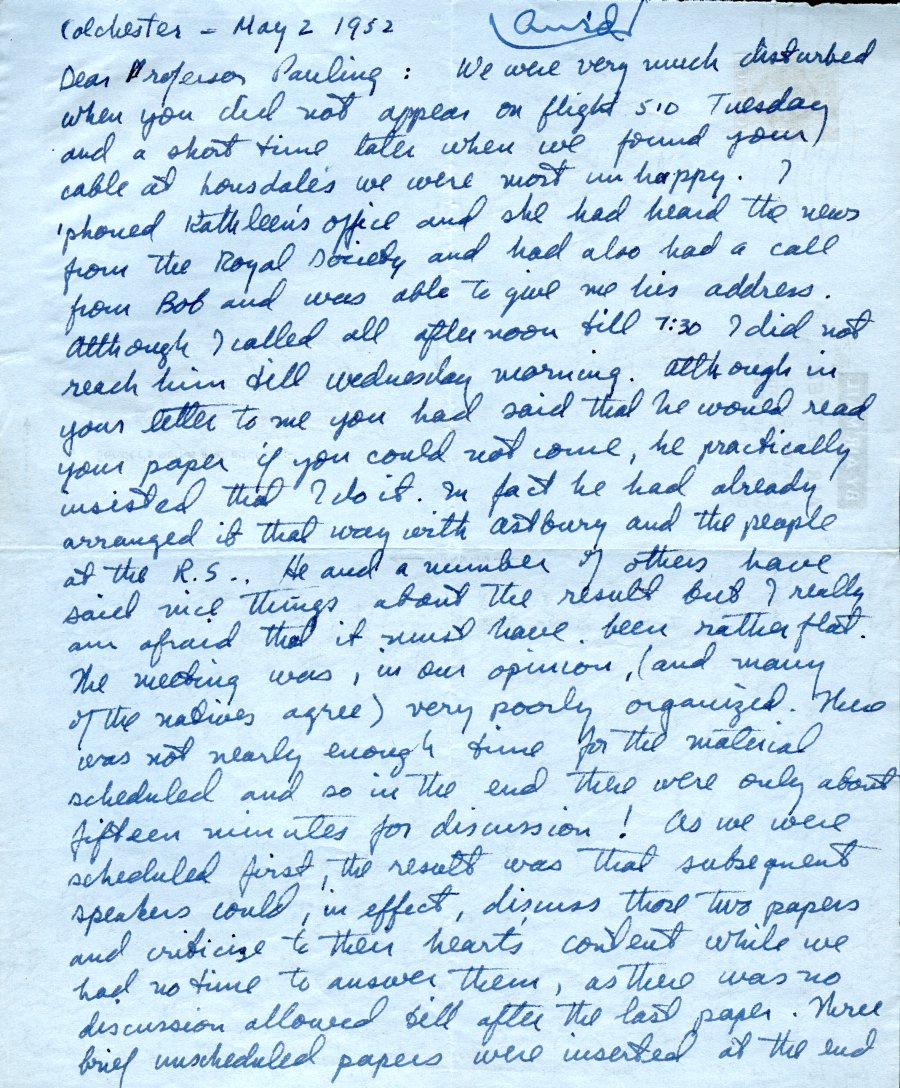 Colchester - May 2 1952
ans'd
Dear Professor Pauling : We were very much disturbed
when you did not appear on flight 510 Tuesday
and a short time later when we found your
cable at Lonsdales we were most unhappy. I
'phoned Kathleen's office and she had heard the news
from the Royal Society and had also had a call
from Bob and was able to give me his address.
Although I called all afternoon till 7:30 I did not
reach him till Wednesday morning. Although in
your letter to me you had said that he would read
your paper if you could not come, he practically
insisted that I do it. In fact he had already
arranged it that way with Astbury and the people
at the R.S.. He and a number of others have
said nice things about the result but I really
am afraid that it must have been rather flat.
The meeting was, in our opinion, (and many
of the natives agree) very poorly organized. There
was not nearly enough time for the material
scheduled and so in the end there were only about
fifteen minutes for discussion! As we were
scheduled first, the result was that subsequent
speakers could, in effect, discuss those two papers
and criticize to their hearts content while we
had no time to answer them, as there was no
discussion allowed till after the last paper. Three
brief unscheduled papers were inserted at the end